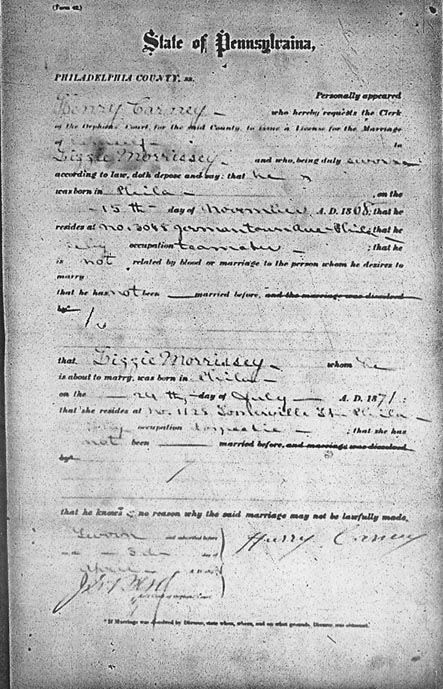 (Form 42.)
State of Pennsylvaina,
PHILADELPHIA COUNTY, ss.
Personally appeared
Henry Carney who hereby requests the Clerk
of the Orphans' Court, for the said County, to issue a License for the Marriage
to
Lizzie Morrissey and who, being duly sworn
according to law, doth depose and say: that he
was born in Phila , on the
15th day of November A. D. 1868; that he
resides at No. Germantown Ave Phila that he
occupation teamster ; that he
is not related by blood or marriage to the person whom he desires to
marry
that he has not been married before, and the marriage was dissolved
by*
that Lizzie Morrissey whom he
is about to marry, was born in Phila
on the 24th day of July A. D. 1871:
that she resides at No. 1128 Somerville St Phila
occupation domestic ; that she has
not been married before, and marriage was dissolved
by*
that he knows no reason why the said marriage may not be lawfully made.
Sworn and subscribed before
me 3d day of
April A. D.
Harry Carney
Ass't Clerk of Orphans' Court.
* If Marriage was dissolved by Divorce, state when, where, and on what grounds, Divorce was obtained.